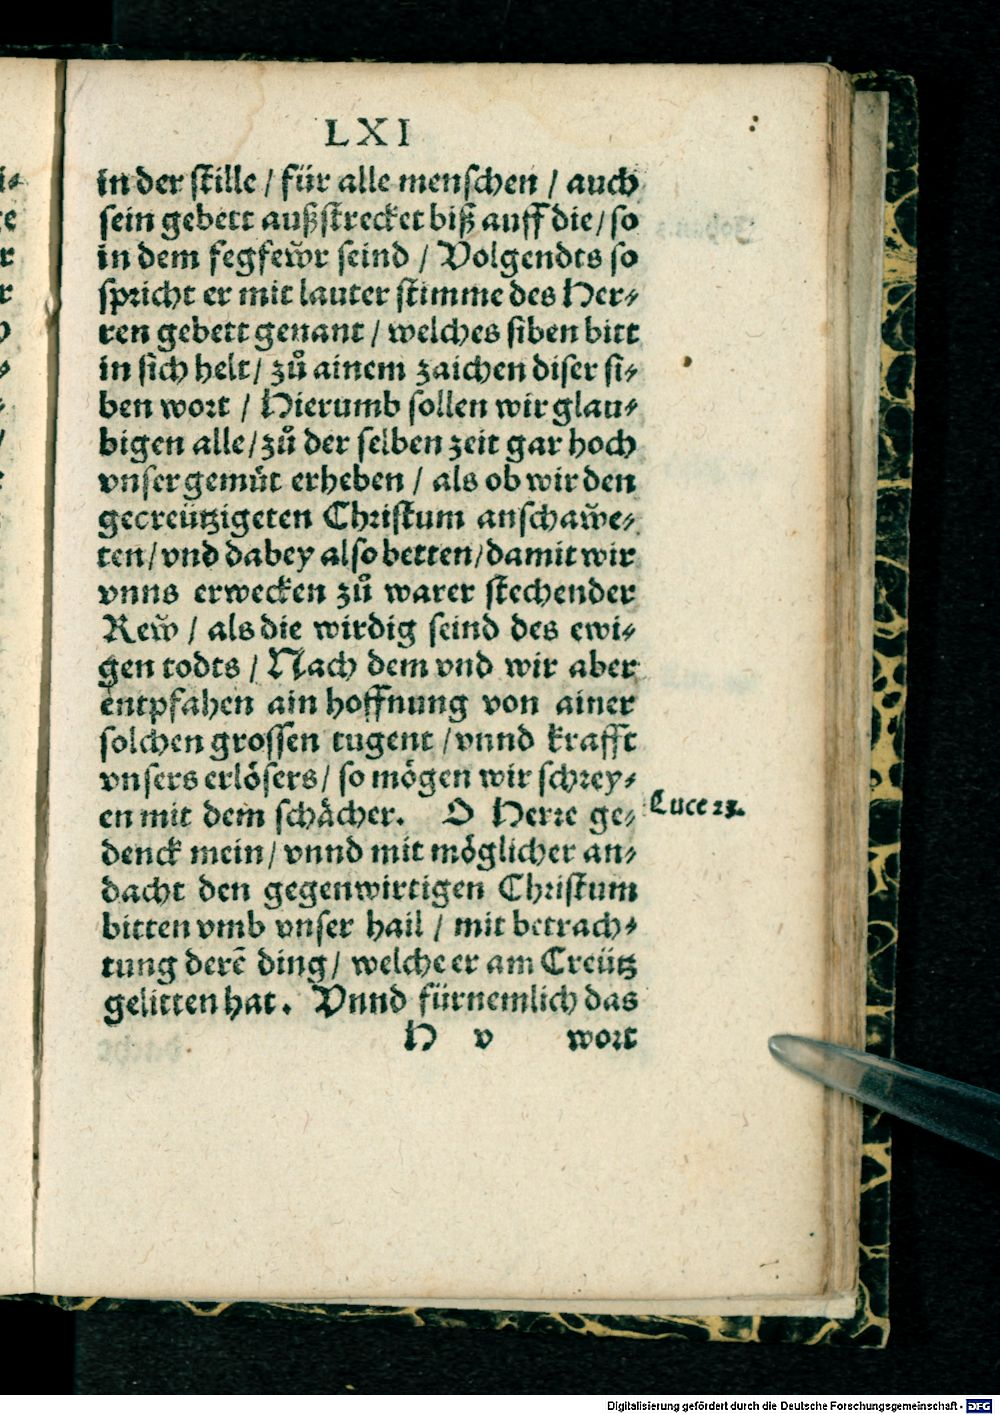 LXI
in der stille / für alle menschen / auch
sein gebett außstrecket biß auff die / so
in dem fegfew̌r seind / Volgendts so
spricht er mit lauter stimme des Her⸗
ren gebett genant / welches siben bitt
in sich helt / zů ainem zaichen diser si⸗
ben wort / Hierumb sollen wir glau⸗
bigen alle / zů der selben zeit gar hoch
vnser gemüt erheben / als ob wir den
gecreützigeten Christum anschaw̌e⸗
ten / vnd dabey also betten / damit wir
vnns erwecken zů warer stechender
Rew̌ / als die wirdig seind des ewi⸗
gen todts / Nach dem vnd wir aber
entpfahen ain hoffnung von ainer
solchen grossen tugent / vnnd krafft
vnsers erlösers / so mögen wir schrey⸗
en mit dem schächer. O Herre ge⸗
Luce 23.
denck mein / vnnd mit möglicher an⸗
dacht den gegenwirtigen Christum
bitten vmb vnser hail / mit betrach⸗
tung derē ding / welche er am Creütz
gelitten hat. Vnnd fürnemlich das
H v wort
Digitalisierung gefördert durch die Deutsche Forschungsgemeinschaft - DFG